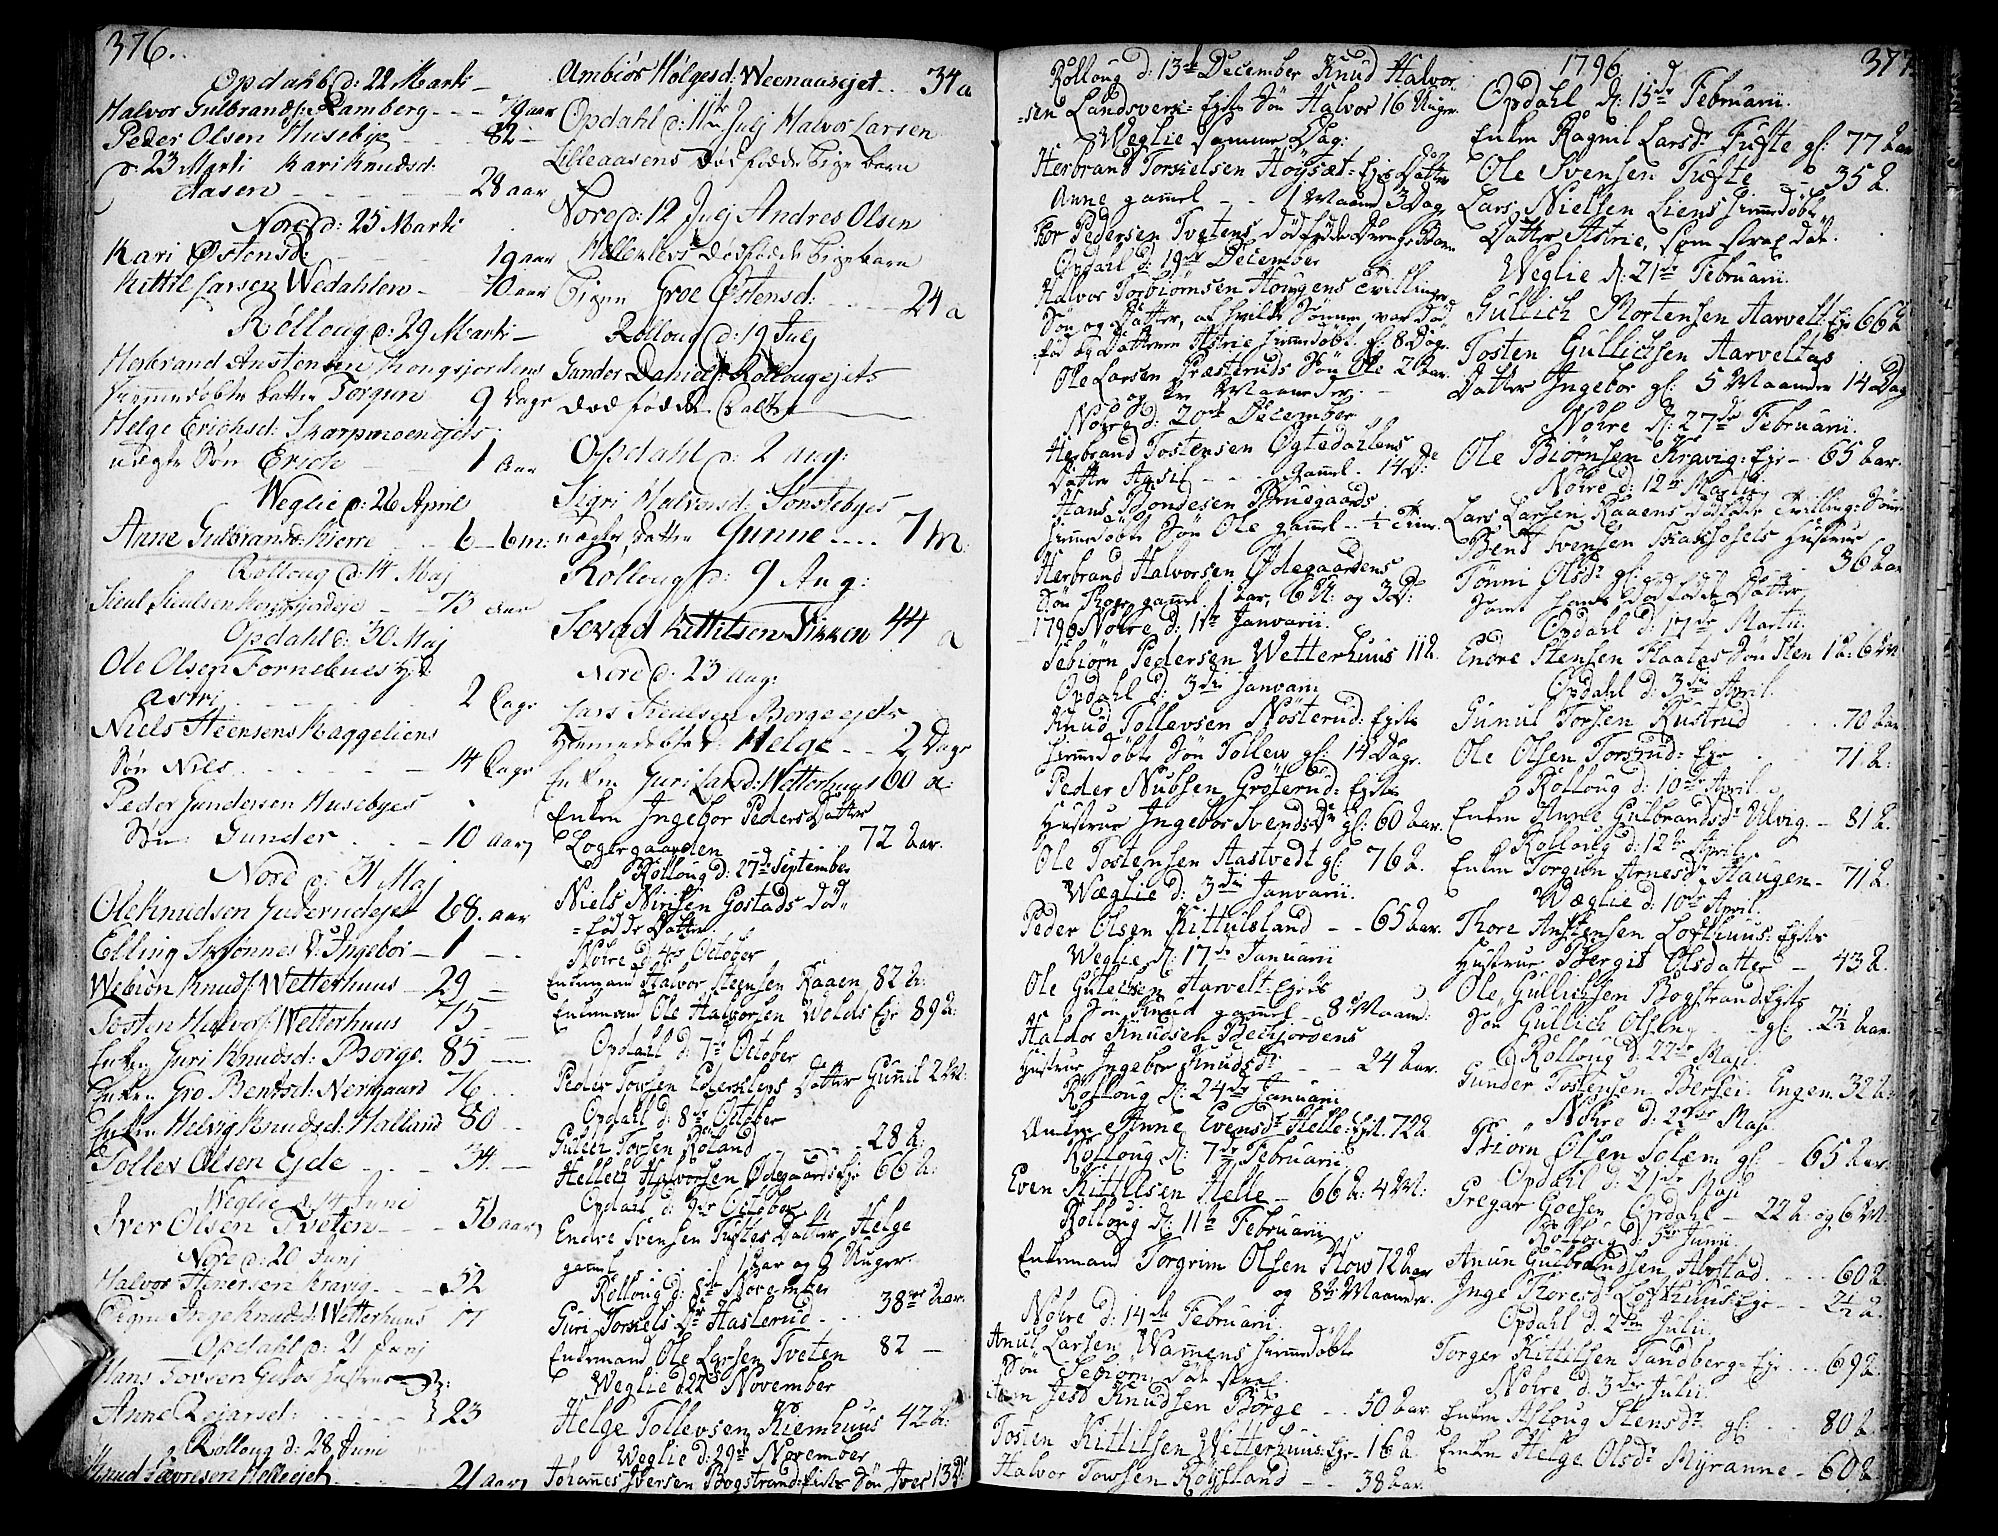 376.
Opdahl d: 22 Marti
Halvor Gulbrands: Ramberg - - - 79 aar
Peder Olsen Husebye - - 82 -
d: 23 Marti Kari Knudsd:
Aasen - - - 28 aar
Nore d: 25 Marti
Kari Østensd: - - 19 aar
Kittil Larsen Wedahlen - 70 aar
Rolloug d: 29 Marti
Herbrand Anstensen Kongsjordens
hjemmedøbte datter Torgun 9 Dage
Helge Erichsd: Skarpmoen ejets
uægte Søn Erich - - 1 Aar
Weglie d: 26 April
Anne Gulbrandsd: Kierre - - 6 - 6 m:
Rolloug d: 14 Maj
Siul Siulsen Kongsjordeje - - 73 aar
Opdahl d: 30 Maj
Ole Olsen Fornebues
Astri - - - 2 Dage
Niels Steensens Haggeliens
Søn Niels - - - 14 Dage
Peder Gundersen Husebyes
Søn Gunder - - 10 aar
Nore d: 31 Maj
Ole Knudsen Guderudejet 68. aar
Elling Skjønnes D: Ingebor - 1 - -
Webiøn Knuds: Wetterhuus - 29 -
Tosten Halvors: Wetterhuus 75 -
Enken Guri Knudsd: Borge. 85 -
Enken Gro Bentsd: Nerigaard 76
Enken Helvig Knudsd: Halland 80
Tollev Olsen Ejde - - - 34. -
Weglie d. 14 Juni
Iver Olsen Tveten - - - 56 aar
Nore d: 20 Juni
Halvor Asmersen Kravig - - - 52
Pigen Inge Knudsd: Wetterhuus 17
Opdahl d: 21 Juni
Hans Tovsen Hustrue
Anne Rejarsd: - - - 23
Rolloug d: 28 Juni
Knud Helleejet - - - 21 aar
Ambiør Holgesd: Weenaasejet - - 34 a
Opdahl d: 11te Julj Halvor Larsen
Lilleaasens dødfødde Pigebarn
Nore d: 12 Julj Andres Olsen
Hellehlevs dødfødde Pigebarn
Pigen Groe Østensd: - - - 24 a
Rolloug d: 19 Julj
Gunder Daniels: Rollougejets
dødfødde Datter
Opdahl d: 2 Aug:
Sigri Halvorsd: Sønstebyes
uægte datter Gunne - - - 7 m
Rolloug d: 9 Aug:
Sevad Kittilsen Vikken 44 a
Nore d: 23 aug:
Lars Siulsen Borge ejets
Hjemmedøbte D: Helge - - 2 Dage
Enken Guri Larsd: Wetterhuus 60 a:
Enken Ingebor Peders Datter
Logtegaarden - - - 72 Aar.
Rolloug d: 27de September
Niels Nirisen Gostads død-
=fødde Datter.
Nore d. 4de October
Enkemand Halvor Steensen Raaen 82 A:
Enkemand Ole Halvorsen Wolds Eje 89 A:
Opdahl d: 7de October
Peder Towsen Datter Gunil 2 M:
Opdahl d: 8de October
Gulich Torsen Roland - - - 28 A:
Hellech Halvorsen Ødegaards Eje 66 A:
Opdahl d: 9de October
Endre Svensen Tuftes Datter Helge
gaml - - - 1 Aar og 3 Uger.
Rolloug d: 8de November
Guri Torkiels Dr Hasterud - - - 38 Aar.
Enkemand Ole Larsen Tveten 82 -
Weglie d. 22 November
Helge Tollevsen Kiemhuus 42 A:
Weglie d: 29de November
Johannes Iversen Bogstrand: Søn Iver 13 D:
Rolloug d: 13de December Knud Halvor-
=sen Landsverk: Ejets Søn Halvor 16 Uger.
Weglie samme Dag:
Herbrand Torkielsen Høysæt: Ejes Datter
Anne gammel - - 1 Maaned 3 Dage
Thor Pedersen Tvetens dødfødde Drenge Barn
Opdahl d: 19de December
Halvor Torbiørnsen Hougens Tvillinger
Søn og Datter, af hvilke Sønnen var død
fød og Datteren Astrie hiemmedøbt gl: 8 Dage.
Ole Larsen Præsteruds Søn Ole 2 Aar.
og Maaneder.
Nohre d: 20de December
Herbrand Tostensen Ogtedahlens
Datter Aasil - - - gamel - 14 D:
Hans Bondesen Brusgaards
hiemmedøbte Søn Ole gammel - - ½ Time.
Herbrand Halvorsen Ødegaardens
Søn Thore gammel 1 Aar, 6 U: og 3 D:
1796 Nohre d: 1te Januarii.
Sebiørn Pedersen Wetterhuus 11 A.
Opdahl d: 3die Januarii
Knud Tollevsen Nøsterud: Ejets
hiemmedøbte Søn Tollew gl: 14 Dage.
Peder Nubsen Groterud: Ejets
Hustrue Ingebor Svendsdr gl: 60 Aar.
Ole Tostensen Aastvedt gl: 76 A.
Wæglie d: 3die Januarii.
Peder Olsen Kittulsland - - 65 Aar.
Weglie d: 17de Januarii
Ole Gulichsen Aarvelt: Ejets
Søn Knud gamel - 8 Maand:
Haldor Knudsen Bechjordens
Hustrue Ingebor Knudsdr - - 24 Aar.
Rolloug d: 24de Januarii
Enken Anne Evensdr Helle: Ejet. 72 A
Rolloug d: 7de Februarii
Even Kittilsen Helle - 66 A: 4 M:
Rolloug d: 11te Februarii
Enkemand Torgrim Olsen How 72 Aar
og 8te Maaneder.
Nohre d: 14de Februarii
Anul Larsen Wamens hiemmedøbte
Søn Sebiørn, døde strax.
Knudsen Borge - - 50 Aar.
Tosten Kittilsen Wetterhuus: Eje - 16 A.
Halvor Towsen Røysland - - 38 Aar.
1796 377
Opdahl d: 15de Februarii.
Enken Ragnil Larsdr Tufte gl: 77 Aar
Ole Svensen Tufte - - 35 A.
Lars Nielsen Liens hiemmedøbte
Datter Astrie, som strax døde.
Weglie d: 21de Februarii.
Gullich Mortensen Aarvelt: Eje 66 A
Tosten Gullichsen Aarveltas
Datter Ingebor gl: 5 Maaneder 14 Dage
Nohre d: 27de Februarii.
Ole Biørnsen Kravig: Eje - 65 Aar.
Nohre d: 12te Martii
Lars Larsen Raaens dødfødde Tvilling: Søner
Bend Svensen Hustrue
Tønni Olsdr gl: - - 36 Aar
samt hendes dødfødde Datter
Opdahl d: 17de Martii.
Endre Stensen Slaates Søn Sten 1 A: 6 M:
Opdahl d: 3die April.
Gunul Torsen Rustrud - - - 70 Aar
Ole Olsen Torsrud: Eje - - 71 A:
Rolloug d: 10de April.
Enken Anne Gulbrandsdr Ulvig - 81 A.
Rolloug d: 12te April
Enken Torgun Arnesdr Haugen - 71 A.
Wæglie d: 10de April.
Thore Anstensen Lofthuus: Ejets
Hustrue Bergit Olsdatter - 43 A.
Ole Gullichsen Bogstrand: Ejets
Søn Gullich Olsen - - gl: - 2½ Aar.
Rolloug d: 22de Maji.
Gunder Tostensen Bersei: Engen 32 A:
Nohre d: 22de Maji.
Biørn Olsen Solem gl: - 65 Aar.
Opdahl d: Maji
Gregar Goesen Opdahl - 22 A: og 6 M:
Rolloug d: 5te Junii.
Anun Gulbrandsen Alvstad - - - 60 A.
Inge Thoresdr Lofthuus: Eje - - 2½ A.
Opdahl d: 2den Julii.
Torger Kittilsen Tandberg: Eje - - 69 A.
Nohre d: 3die Julii
Enken Asloug Stensdr gl: - - 80 A.
Enken Helge Olsdr Myranne - 60 A.